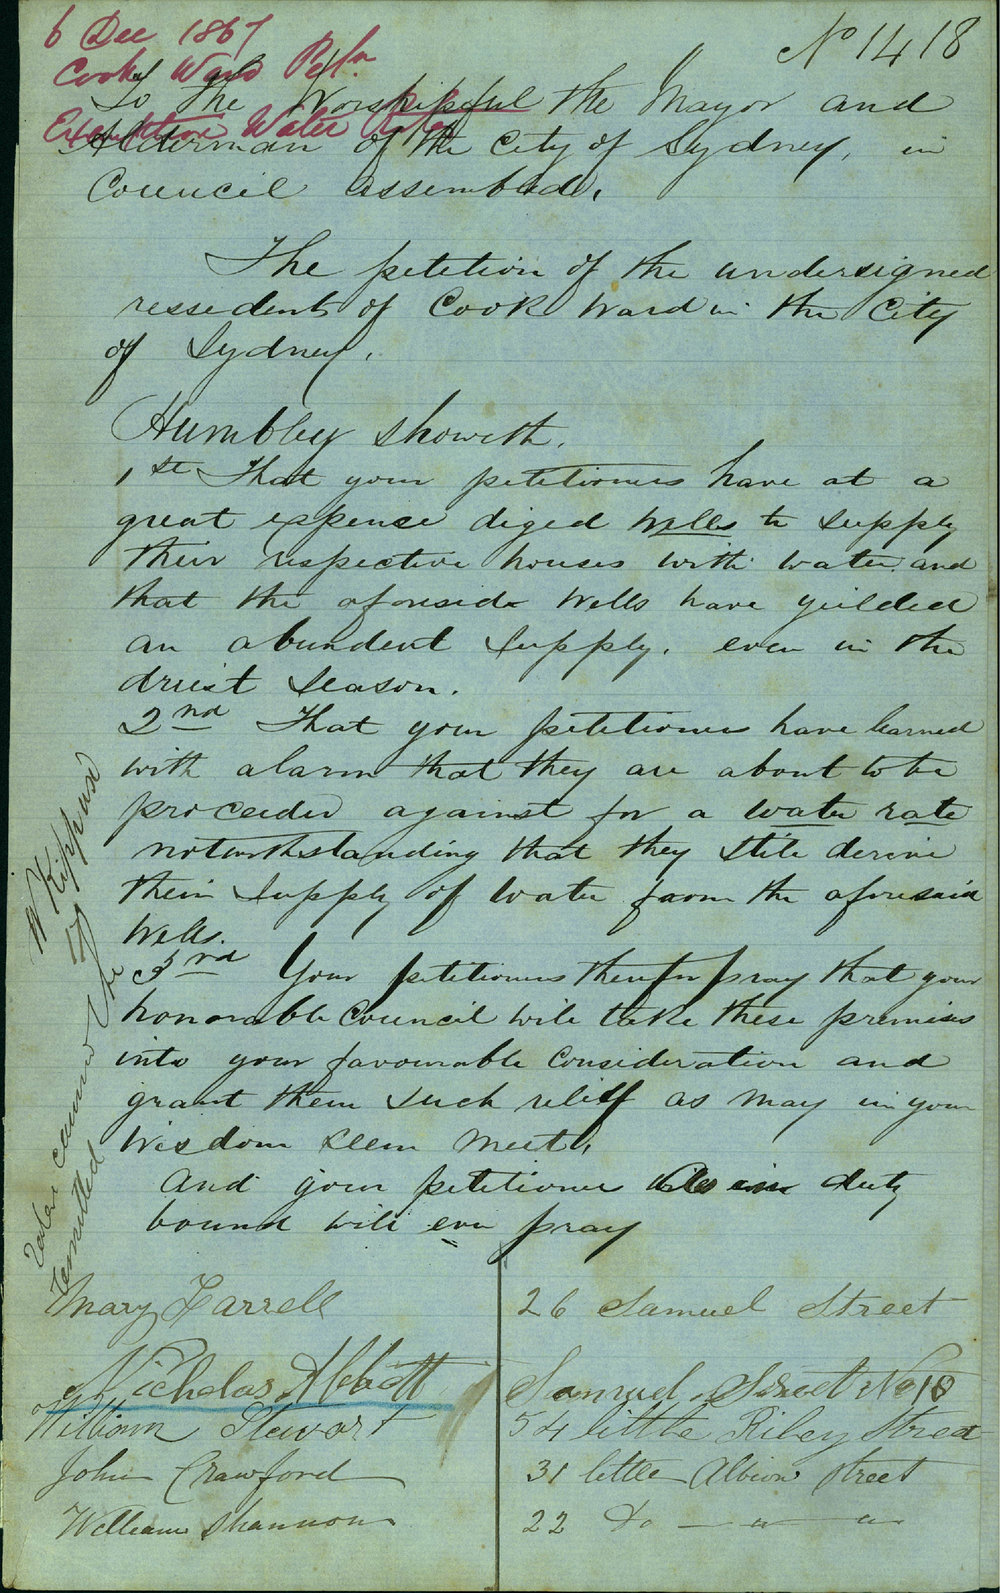 6 Dec 1867
Cook Ward Petn.
Exemption Water Rate
No 1418
To the Worshipful the Mayor and
Alderman of the City of Sydney, in
Council assembled.
The petition of the undersigned
ressedents of Cook Ward in the City
of Sydney.
Humbley Showeth.
1st That your petitioners have at a
great expence diged wells to supply
their respective houses with water and
that the aforeside Wells have yeilded
an abundent supply. even in the
driest season.
2nd That your petitioners have learned
with alarm that they are about to be
proceeded against for a water rate
notwithstanding that they still derive
their supply of water from the aforesaid
Wells.
3rd Your petitioners therefor pray that your
honorable Council will take these premises
into your favourable consideration and
grant them such relief as may in your
Wisdom seem meet.
And your petitioners as in duty
bound will ever pray
Mary Farrell 26 Samuel Street
Nicholas Abbott Samuel Street No 10
William Stewart 54 little Riley Street
John Crawford 31 little Albion street
William Shannon 22 Do — " — "
Rates cannot be
remitted